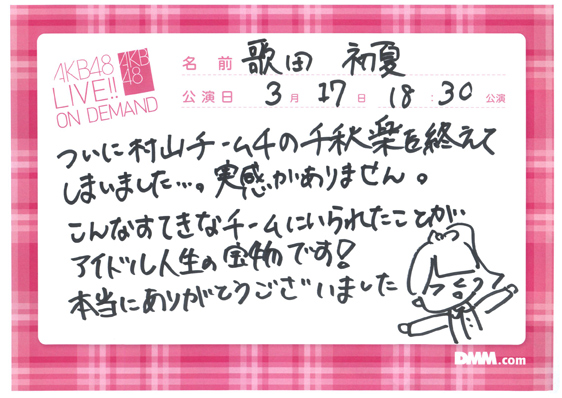 AKB48
LIVE!!
ON DEMAND
AKB
48
名前 歌田 初夏
公演日 3月 17日 18:30 公演
ついに村山チーム4の千秋楽を終えて
しまいました…。実感がありません。
こんなすてきなチームにいられたことが…
アイドル人生の宝物です!
本当にありがとうございました
DMM.com